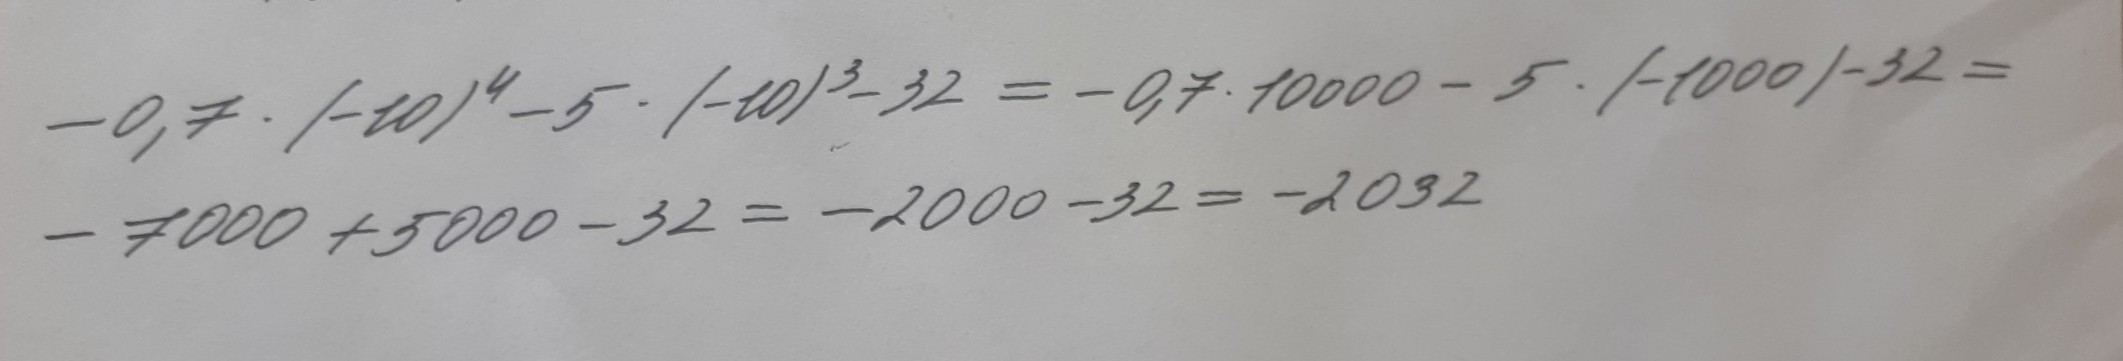 -0,7 · (-10)⁴ - 5 · (-10)³ - 32 = -0,7 · 10000 - 5 · (-1000) - 32 =
- 7000 + 5000 - 32 = -2000 - 32 = -2032